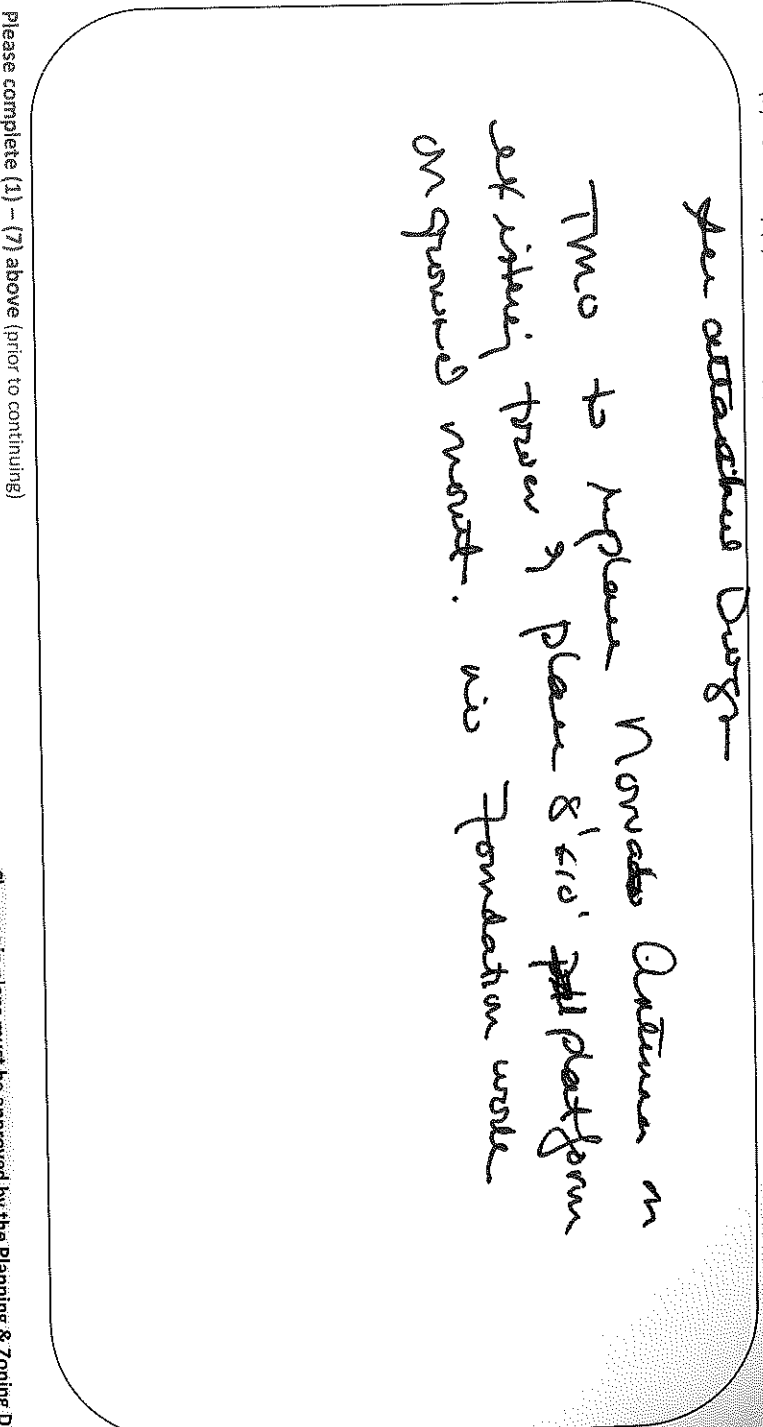 See attached Dwgs
TMO to replace Antenna on
existing tower & place 8' x 10' platform
on ground mount. no Foundation work
Please complete (1) – (7) above (prior to continuing)
must be approved by the Planning & Zoning D